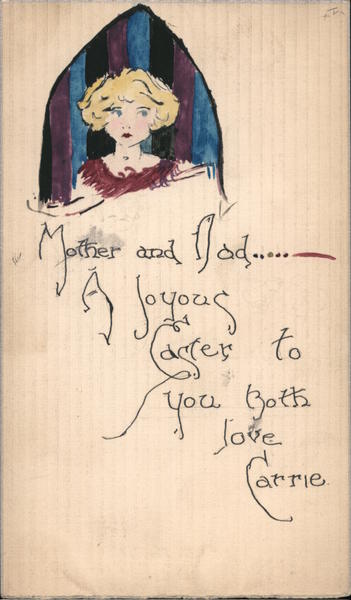 Mother and Dad.....
A Joyous
Easter to
you Both
love
Carrie